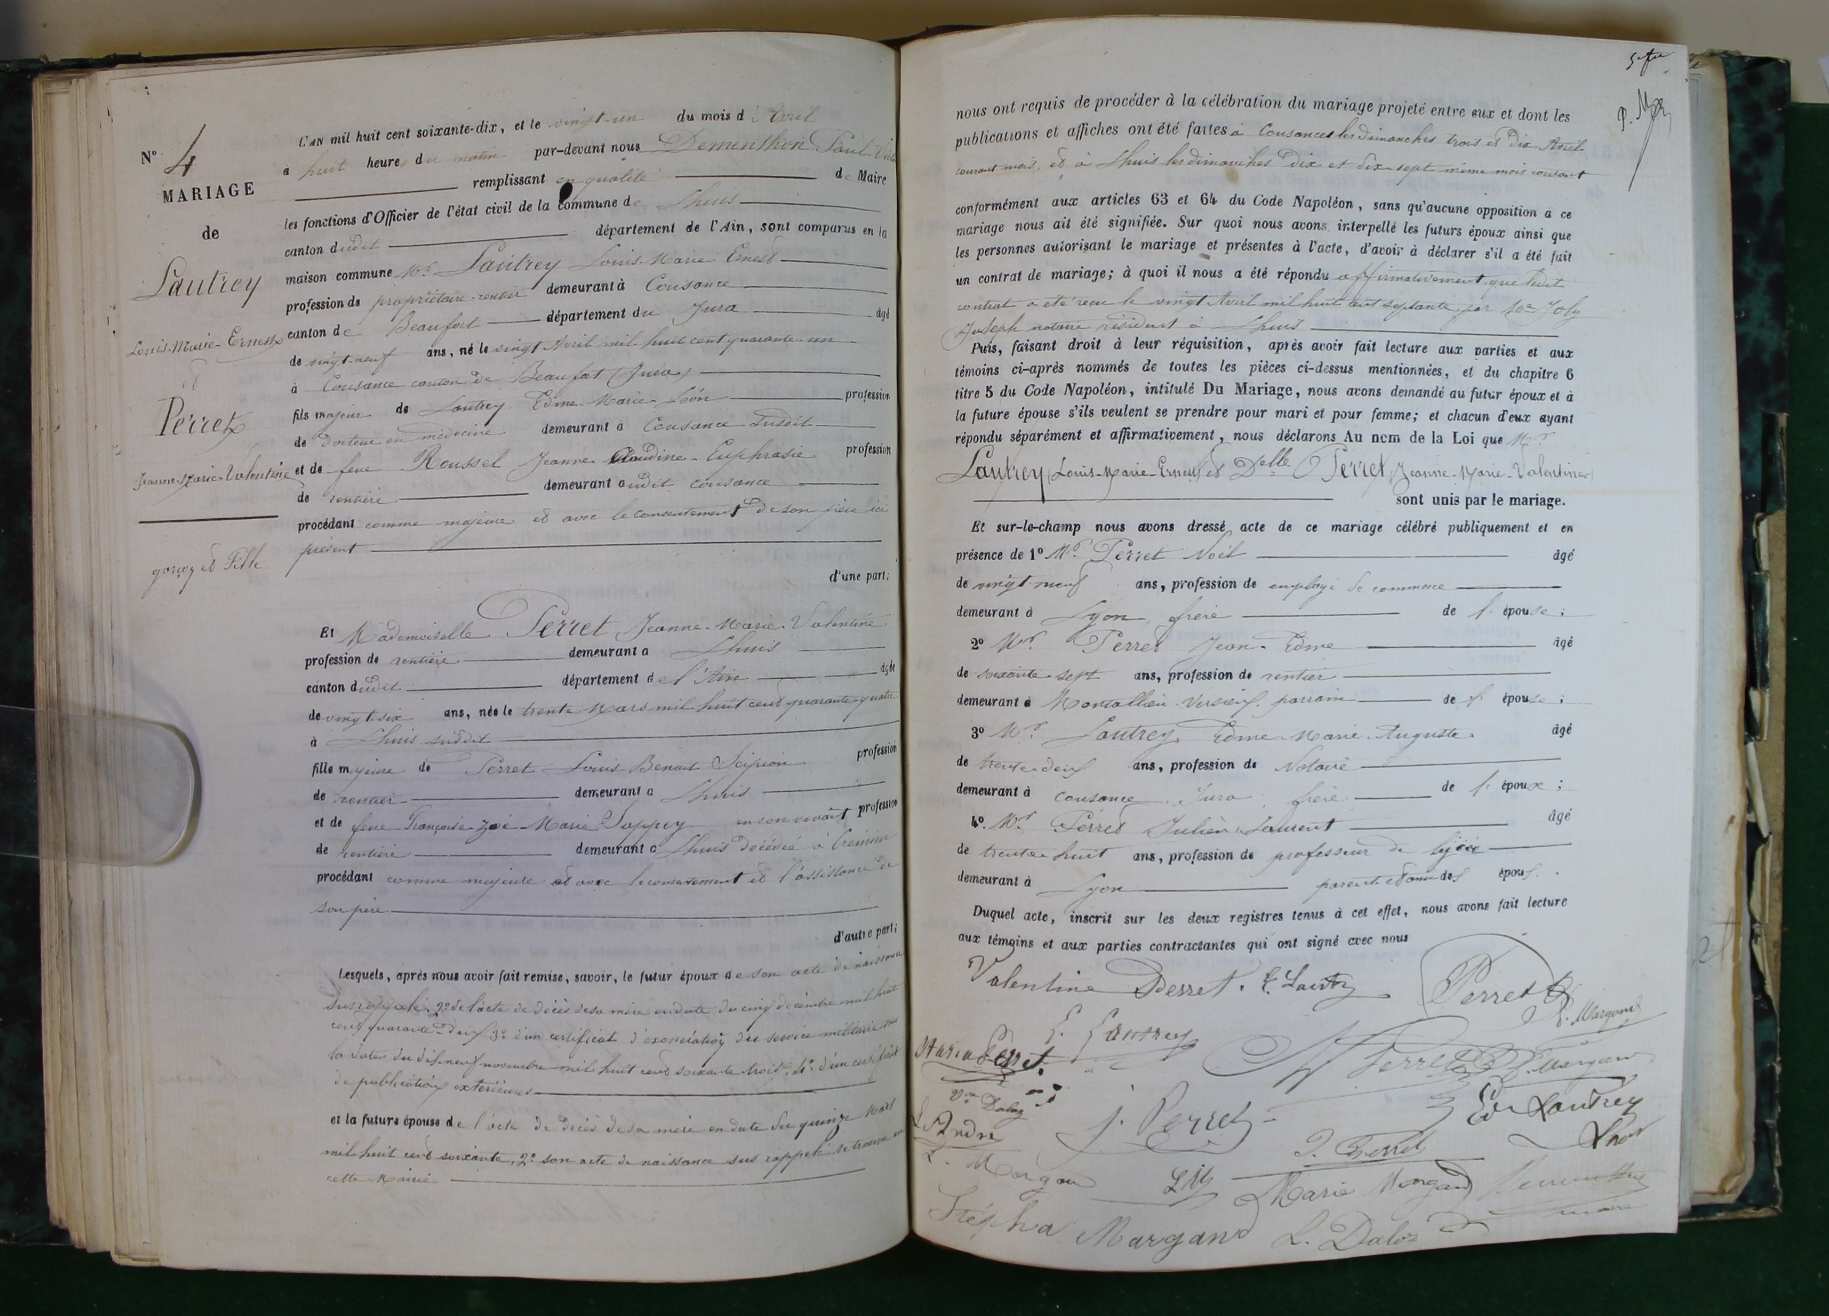 N° 4
MARIAGE
de
Lautrey
Louis-Marie-Ernest
et
Perret
Jeanne-Marie-Valentine
garçon et Fille
L'AN mil huit cent soixante-dix, et le vingt-un du mois d'Avril
à huit heure du matin par-devant nous Dementhon Paul
remplissant en qualité de Maire
les fonctions d'Officier de l'état civil de la commune de Lhuis
canton dudit département de l'Ain, sont comparus en la
maison commune Mr Lautrey Louis-Marie Ernest
profession de propriétaire-rentier demeurant à Cousance
canton de Beaufort département du Jura âgé
de vingt-neuf ans, né le vingt Avril mil huit cent quarante-un
à Cousance canton de Beaufort (Jura)
fils majeur de Lautrey Edme-Marie-Léon profession
de docteur en médecine demeurant à Cousance susdit
et de feue Roussel Jeanne Claudine-Euphrasie profession
de rentière demeurant audit Cousance
procédant comme majeur et avec le consentement de son père ici
présent
d'une part;
Et Mademoiselle Perret Jeanne-Marie-Valentine
profession de rentière demeurant à Lhuis
canton dudit département de l'Ain âgée
de vingt-six ans, née le trente Mars mil huit cent quarante-quatre
à Lhuis susdit
fille majeure de Perret Louis Benoit Scipion profession
de rentier demeurant à Lhuis
et de feue Françoise-Zoé-Marie Sappey en son vivant profession
de rentière demeurant à Lhuis décédée à Crémieu
procédant comme majeure et avec le consentement et l'assistance de
son père
d'autre part;
Lesquels, après nous avoir fait remise, savoir, le futur époux de son acte de naissance
susrappelé, 2° de l'acte de décès de sa mère en date du cinq décembre mil huit
cent quarante-deux 3° d'un certificat d'exonération du service militaire sous
la date du dix-neuf novembre mil huit cent soixante trois, 4° d'un certificat
de publications extérieures
et la future épouse de l'acte de décès de sa mère en date du quinze Mars
mil huit cent soixante, 2° son acte de naissance sus rappelé se trouve en
cette Mairie
nous ont requis de procéder à la célébration du mariage projeté entre eux et dont les
publications et affiches ont été faites à Cousances les dimanches trois et dix Avril
courant mois, et à Lhuis les dimanches dix et dix sept même mois courant
conformément aux articles 63 et 64 du Code Napoléon, sans qu'aucune opposition à ce
mariage nous ait été signifiée. Sur quoi nous avons interpellé les futurs époux ainsi que
les personnes autorisant le mariage et présentes à l'acte, d'avoir à déclarer s'il a été fait
un contrat de mariage; à quoi il nous a été répondu affirmativement que ledit
contrat a été reçu le vingt Avril mil huit cent septante par Me Joly
Joseph notaire résidant à Lhuis
Puis, faisant droit à leur réquisition, après avoir fait lecture aux parties et aux
témoins ci-après nommés de toutes les pièces ci-dessus mentionnées, et du chapitre 6
titre 5 du Code Napoléon, intitulé Du Mariage, nous avons demandé au futur époux et à
la future épouse s'ils veulent se prendre pour mari et pour femme; et chacun d'eux ayant
répondu séparément et affirmativement, nous déclarons Au nom de la Loi que Mr
Lautrey (Louis-Marie-Ernest) et Delle Perret (Jeanne-Marie-Valentine)
sont unis par le mariage.
Et sur-le-champ nous avons dressé acte de ce mariage célébré publiquement et en
présence de 1° Mr Perret Noël âgé
de vingt neuf ans, profession de employé de commerce
demeurant à Lyon frère de l'épouse;
2° Mr Perret Jean-Edme âgé
de soixante-sept ans, profession de rentier
demeurant à Montallieu-Vercieu, parrain de l'épouse;
3° Mr Lautrey Edme-Marie-Auguste âgé
de trente-deux ans, profession de Notaire
demeurant à Cousance Jura, frère de l'époux;
4° Mr Perret Julien Laurent âgé
de trente huit ans, profession de professeur de lycée
demeurant à Lyon parent et ami des époux.
Duquel acte, inscrit sur les deux registres tenus à cet effet, nous avons fait lecture
aux témoins et aux parties contractantes qui ont signé avec nous
Valentine Perret. E. Lautrey Perret
E. Lautrey
Maria Perret N Perret
J. Perret Ed Lautrey
J. Perret
Marie Morgand
Stépha Margand L. Daloz